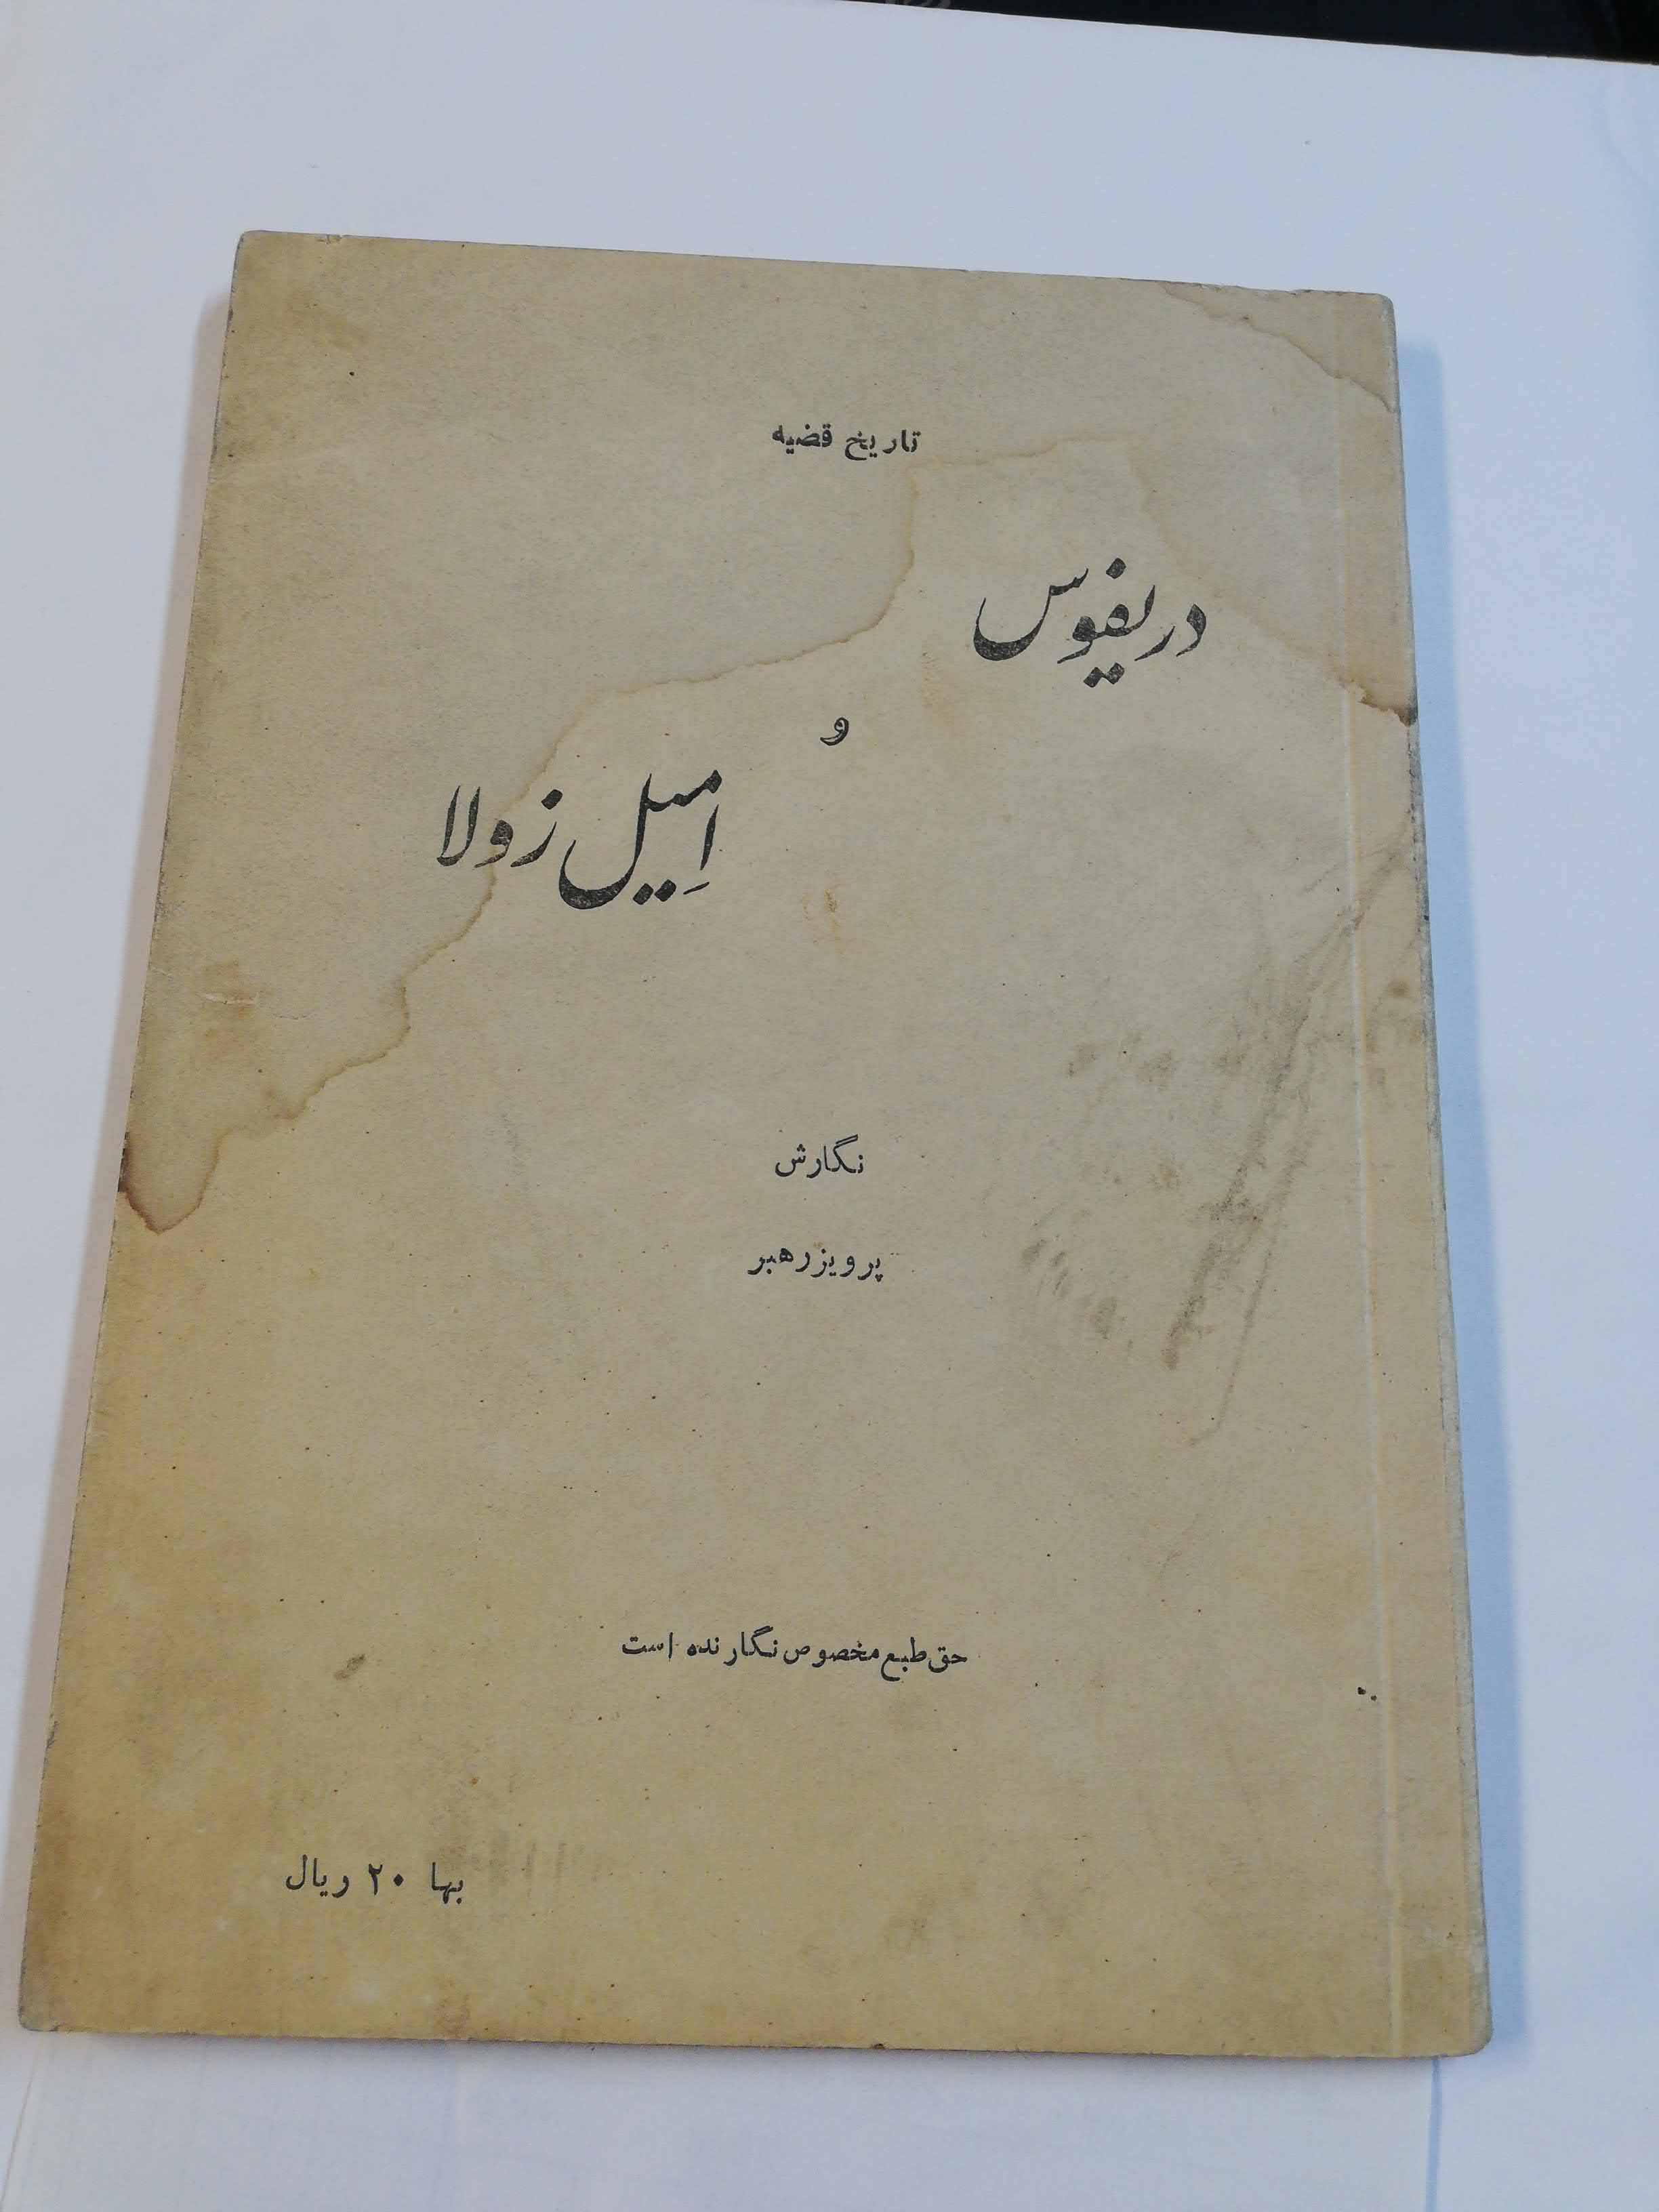 تاریخ قضیه
دریفوس
و
اِمیل زولا
نگارش
پرویز رهبر
حق طبع مخصوص نگارنده است
بها ۲۰ ریال